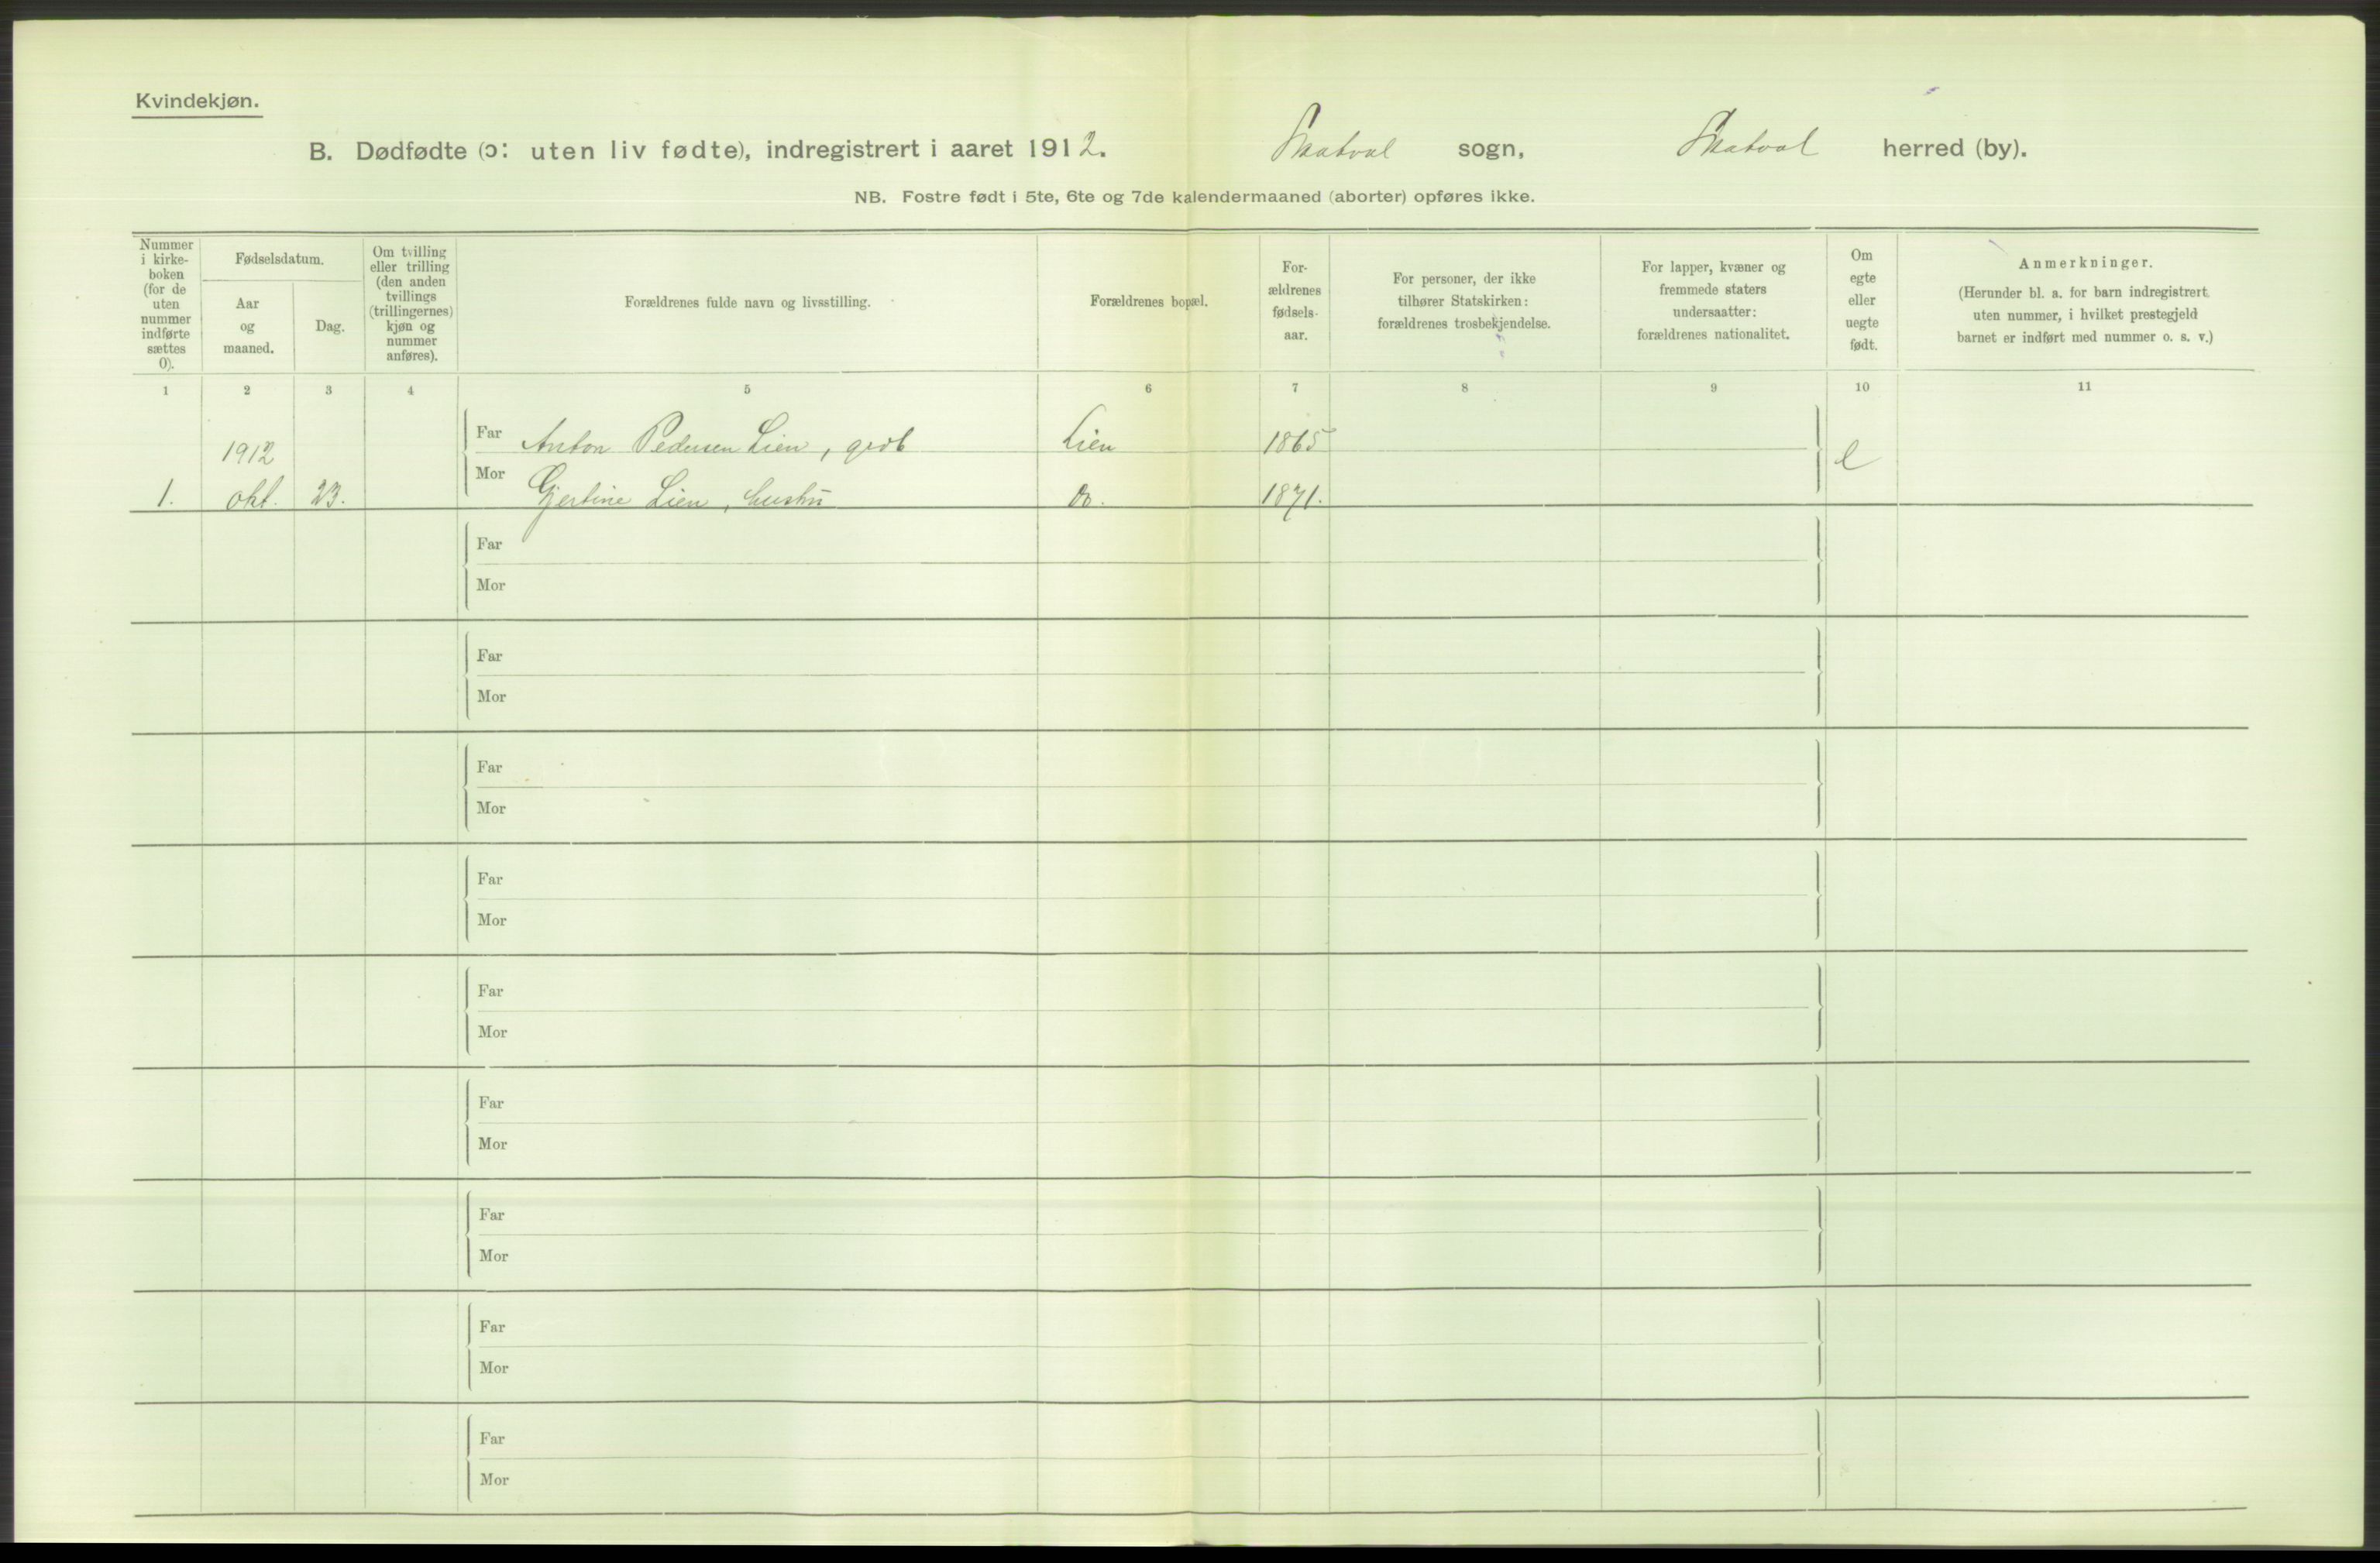 Kvindekjøn.
B. Dødfødte (ɔ: uten liv fødte), indregistrert i aaret 1912. Skatval sogn, Skatval herred (by).
NB. Fostre født i 5te, 6te og 7de kalendermaaned (aborter) opføres ikke.
Nummer i kirke-boken (for de uten nummer indførte sættes 0).
Fødselsdatum.
Aar og maaned.
Dag.
Om tvilling eller trilling (den anden tvillings (trillingernes) kjøn og nummer anføres).
Forældrenes fulde navn og livsstilling.
Forældrenes bopæl.
For-ældrenes fødsels-aar.
For personer, der ikke tilhører Statskirken: forældrenes trosbekjendelse.
For lapper, kvæner og fremmede staters undersaatter: forældrenes nationalitet.
Om egte eller uegte født.
Anmerkninger.
(Herunder bl. a. for barn indregistrert uten nummer, i hvilket prestegjeld barnet er indført med nummer o. s. v.)
1 2 3 4 5 6 7 8 9 10 11
Far Anton Pedersen Lien, grdb Lien 1865
1912 e
1. okt. 23. Mor Gjertine Lien, hustru do. 1871.
Far
Mor
Far
Mor
Far
Mor
Far
Mor
Far
Mor
Far
Mor
Far
Mor
Far
Mor
Far
Mor